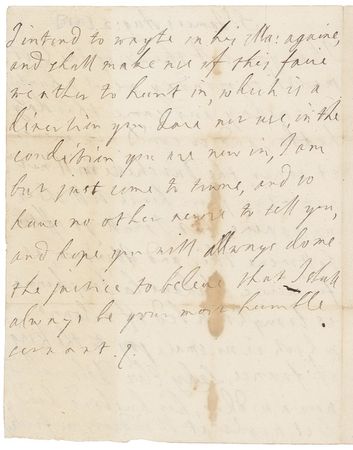 I intend to wayte on her Ma: againe,
and shall make use of this faire
wether to hunt in, which is a
direction you dare not use, in the
condition you are now in, I am
but just come to towne, and so
have no other newse to tell you,
and hope you will allways do me
the justice to beleve that I shall
always be your most humble
servant.